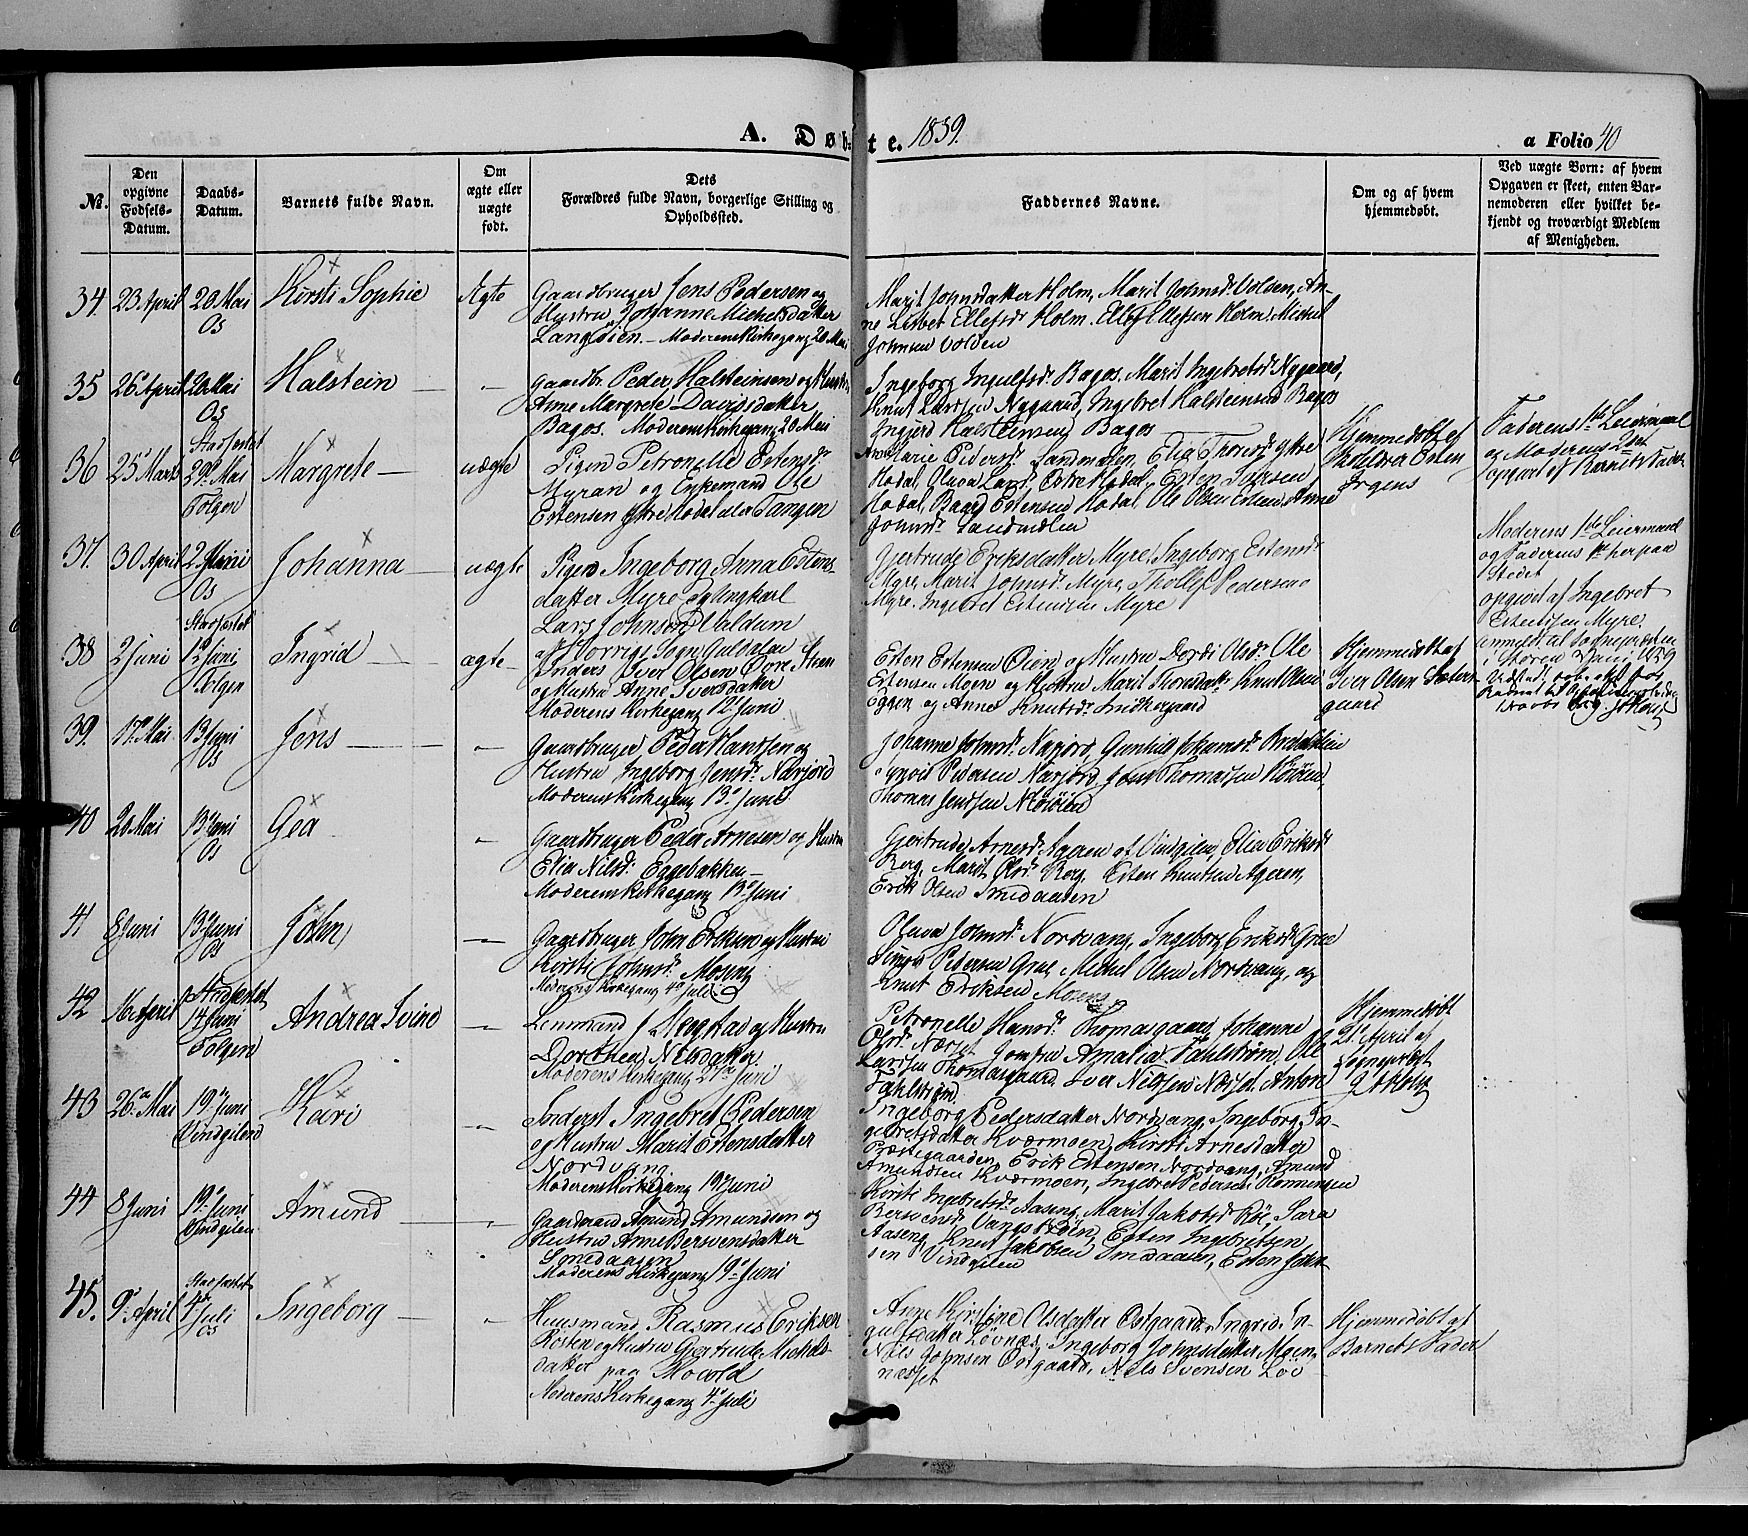 A. Døbte. 1859.
a Folio 40
No.
Den opgivne Fødsels-Datum.
Daabs-Datum.
Barnets fulde Navn.
Om ægte eller uægte født.
Dets Forældres fulde Navn, borgerlige Stilling og Opholdssted.
Faddernes Navne.
Om og af hvem hjemmedøbt.
Ved uægte Børn: af hvem Opgaven er skeet, enten Barnemoderen eller hvilket bekjendt og troværdigt Medlem af Menigheden.
34 23 April 20 Mai Os
Kirsti Sophie
Ægte
Gaardbruger Jens Pedersen og
Hustru Johanne Michelsdatter
Langøien. – Moderens Kirkegang 20 Mai
Marit Johnsdatter Holm, Marit Johnsdr Volden, An-
ne Lisbet Ellefsdr Holm. Ellef Ellefsen Holm. Michel
Johnsen Volden
35 26 April 20 Mai Os
Halstein
Gaardbr. Peder Halsteinsen og Hustru
Anne Margrete Davidsdatter
Bagos. Moderens Kirkegang 20 Mai
Ingeborg Ingulfsdr Bagos, Marit Ingebretsdr Nygaard,
Knut Larssen Nygaard, Ingebret Halsteinsen Bagos
Halsteinsen Bagos
36 25 Marts Stadfæstet 29 Mai Tolgen
Margrete
uægte
Pigen Petronelle Estensdr
Myran og Enkemand Ole
Estensen Hodal eller Tangen
Marie Pedersdr Sandmælen, Elia Tronsdr
Hodal, Oluva Larsdr Hodal, Esten
Hodal, Baard Estensen Hodal, Ole Olsen Anne
Johnsdr Sandmælen
Hjemmedøbt af
Esten
Jrgens
Faderens 1ste Leiermaal
og Moderens 2det
opgivet af Barnets Fader
37. 30 April 2 Juni Os
Johanna
uægte
Pigen Ingeborg Anna Estens-
datter Myre og Ungkarl
Lars Johnsen Valdum
af Horrigs Sogn Guldalen
Gjertrude Eriksdatter Myre, Ingeborg Estensdr
Myre, Marit Johnsdr Myre, Thollef Pedersen
Myre, Ingebret Estensen Myre
Moderens 1ste Leiermaal
og Faderens 1ste her paa
Stedet
opgivet af Ingebret
Estensen Myre.
anmeldt til Sognepræsten
i Støren Juni 1859
38 2 Juni Stadfæstet 12 Juni Tolgen
Ingrid
ægte
Inders. Iver Olsen Øvre Steen
og Hustru Anne Iversdatter
Moderens Kirkegang 12 Juni
Esten Estensen Øien og Hustru Dordi Olsdr Ole
Estensen Moen og Hustru Marit Thorsdr Knut Olsen
Eggen og Anne Knutsdr
Hjemmedøbt af
Iver Olsen
gaard
39. 17 Mai 13 Juni Os
Jens
Gaardbruger Peder Hanssen og
Hustru Ingeborg Jensdr Narjord
Moderens Kirkegang 13 Juni
Johanne Johnsdr Narjord, Gunhild
Pedersen Narjord, Jens Thomassen Nørøien,
Thomas Jenssen Nørøien
40 20 Mai 13 Juni Os
Gea
Gaardbruger Peder Arnesen og Hustru
Elia Nilsdr Eggebakken –
Moderens Kirkegang 13 Juni
Gjertrude Arnesdr Ageren af Vindgilen, Elia Eriksdr
Berg, Marit Olsdr Berg. Esten Knutsen Ageren,
Erik Olsen Smedaasen
41 8 Juni 13 Juni Os
John
Gaardbruger John Eriksen og Hustru
Kirsti Johnsdr Moseng
Moderens Kirkegang 4 Juli
Oluva Johnsdr Nordvang, Ingeborg Eriksdr Grue
Pedersen Grue, Michel Olsen Nordvang, og
Knut Eriksen Moseng
42 16 April Stadfæstet 14 Juni Tolgen
Andrea
Lensmand J. og Hustru
Dorthea Nilsdatter
Moderens Kirkegang 21de Juni
Petronelle Hansdr Thomasgaard, Johanne
Olsdr Næset Jomfru Amalia Fahlstrøm, Ole
Larssen Thomasgaard, Iver Nilssen Næset. Anton
Fahlstrøm.
Hjemmedøbt
21 April af
Sognepræst
43 26 Mai 19 Juni Vindgilen
Kari
Inderst Ingebret Pedersen
og Hustru Marit Estensdatter
Nordvang
Moderens Kirkegang 19 Juni
Ingeborg Pedersdatter Nordvang, Ingeborg In-
gebretsdatter Kværmoen, Kirsti Arnesdatter
Præstegaarden, Erik Estensen Nordvang, Amund
Amundsen Kværmoen, Ingebret Pedersen
44 8 Juni 19 Juni Vindgilen
Amund
Gaardmand Amund Amundsen og
Hustru Anne Bersvensdatter
Smedaasen
Moderens Kirkegang 19 Juni
Kirsti Ingebretsdr Aaseng, Marit Jakobsd Røe, Sara
Bersvensdr Vangskøien, Esten Ingebretsen
Aaseng, Knut Jakobsen Smedaasen, Esten
sen Vindgilen
45. 9 April Stadfæstet 4de Juli Os
Ingeborg
Huusmand Rasmus Eriksen
Rosten og Hustru Gjertrude Michels-
datter paa Movold
Moderens Kirkegang 4 Juli
Anne Kirstine Olsdatter Østgaard, Ingrid In-
gulfsdatter Løvnæs, Ingeborg Johnsdatter Moen,
Nils Johnsen Østgaard, Nils Svensen Løv-
næsset
Hjemmedøbt af
Barnets Fader